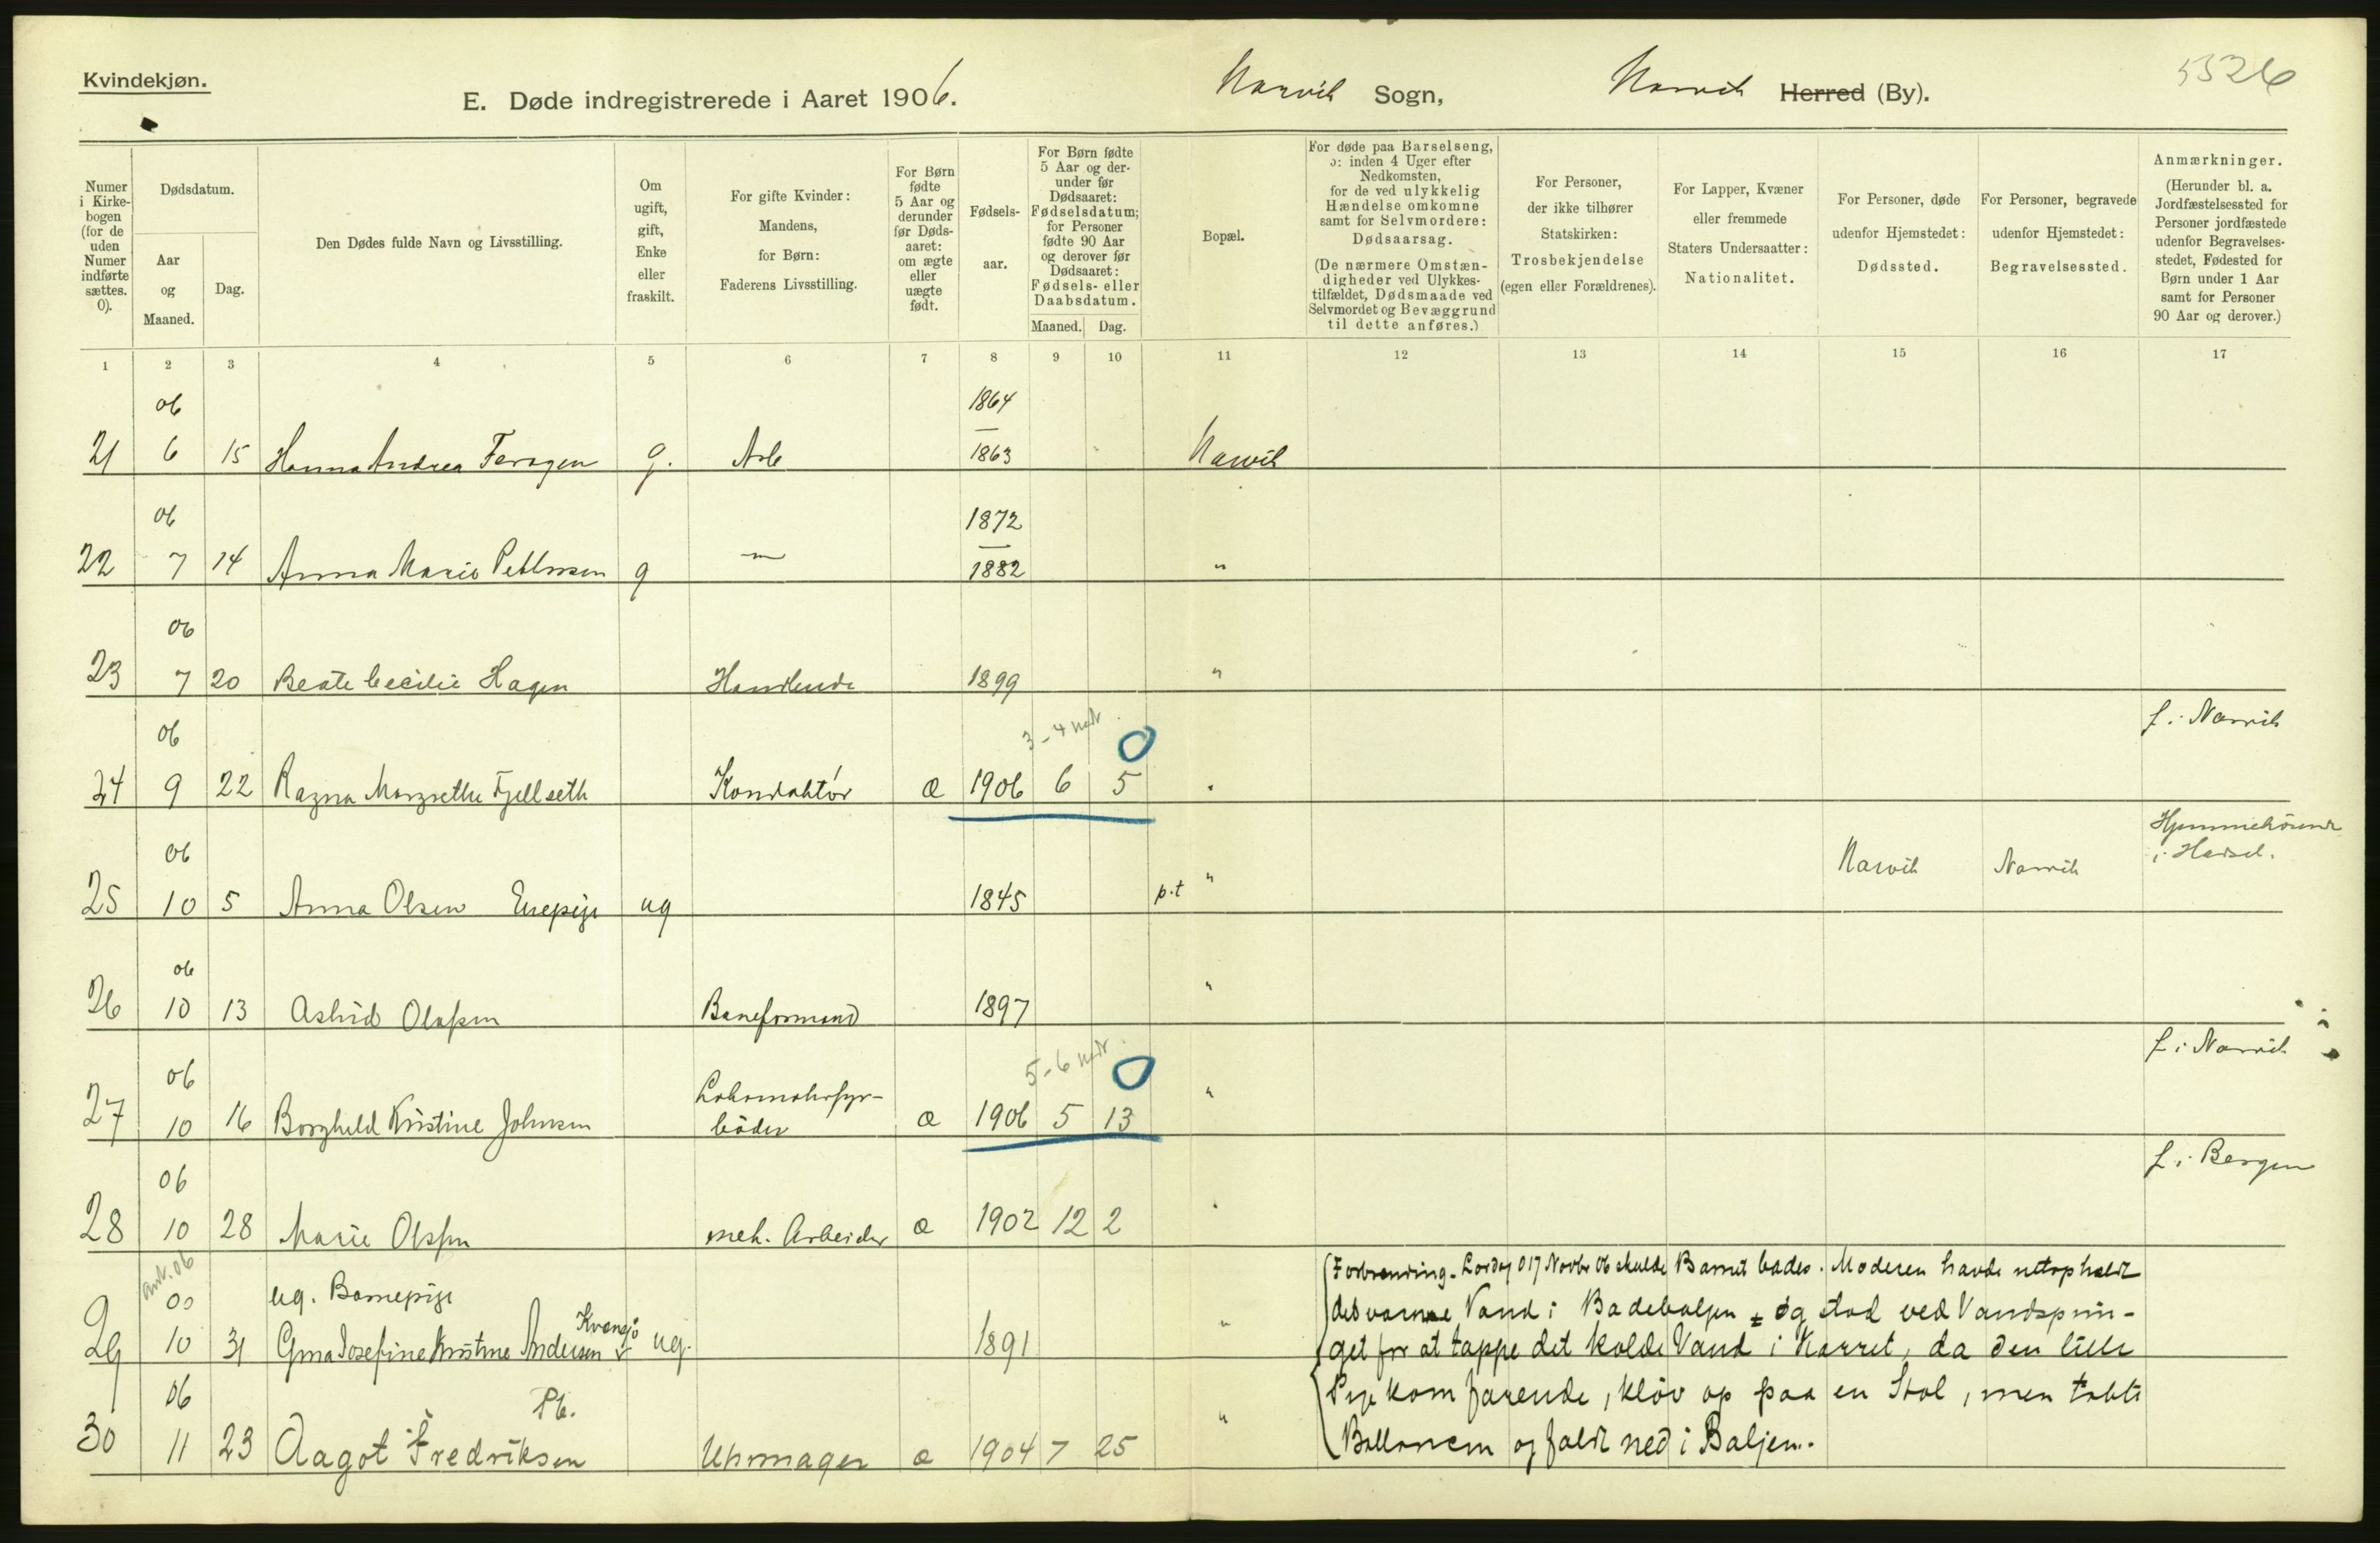 Kvindekjøn.
E. Døde indregistrerede i Aaret 1906.
Narvik Sogn, Narvik Herred (By).
5526
Numer i Kirkebogen (for de uden Numer indførte sættes. 0).
Dødsdatum.
Aar og Maaned.
Dag.
Den Dødes fulde Navn og Livsstilling.
Om ugift, gift, Enke eller fraskilt.
For gifte Kvinder: Mandens, for Børn: Faderens Livsstilling.
For Børn fødte 5 Aar og derunder før Dødsaaret: om ægte eller uægte født.
Fødselsaar.
For Børn fødte 5 Aar og derunder før Dødsaaret: Fødselsdatum; for Personer fødte 90 Aar og derover før Dødsaaret: Fødsels- eller Daabsdatum.
Maaned. Dag.
Bopæl.
For døde paa Barselseng, ɔ: inden 4 Uger efter Nedkomsten, for de ved ulykkelig Hændelse omkomne samt for Selvmordere: Dødsaarsag. (De nærmere Omstændigheder ved Ulykkestilfældet, Dødsmaade ved Selvmordet og Bevæggrund til dette anføres.)
For Personer, der ikke tilhører Statskirken: Trosbekjendelse (egen eller Forældrenes).
For Lapper, Kvæner eller fremmede Staters Undersaatter: Nationalitet.
For Personer, døde udenfor Hjemstedet: Dødssted.
For Personer, begravede udenfor Hjemstedet: Begravelsessted.
Anmærkninger. (Herunder bl. a. Jordfæstelsessted for Personer jordfæstede udenfor Begravelsesstedet, Fødested for Børn under 1 Aar samt for Personer 90 Aar og derover.)
1 2 3 4 5 6 7 8 9 10 11 12 13 14 15 16 17
06 1864
21 6 15 Hanna Andrea g. Arb 1863 Narvik
06 1872
22 7 14 Anna Marie Pettersen g — 1882 "
06
23 7 20 Beate Cecilie Hagen Handlende 1899 "
06 3-4 mdr 0 f. i Narvik
24 9 22 Ragna Margrethe Fjellseth Konduktør æ 1906 6 5 "
06 Narvik Narvik Hjemmehörende i Hadsel.
25 10 5 Anna Olsen ug 1845 p.t "
06
26 10 13 Astrid Olafsen Baneformand 1897 "
06 5-6 mdr. 0 f. i Narvik
27 10 16 Borghild Kristine Johnsen Lokomotivfyrböder æ 1906 5 13 "
06 f. i Bergen
28 10 28 Marie Olsen mek. Arbeider æ 1902 12 2 "
ant. 06
00 ug. Barnepige
29 10 31 Gina Josefine Kristine Andersen ug. 1891 "
06 Pb.
30 11 23 Aagot Fredriksen Uhrmager æ 1904 7 25 "
Forbrænding. Lørdag 17 Novbr 06 skulde Barnet bades. Moderen havde netop hældt
det varme Vand i Badebaljen og stod ved Vandsprin-
get for at tappe det kolde Vand i Karret, da den lille
Pige kom farende, kløv op paa en Stol, men tabte
Ballancen og faldt ned i Baljen.